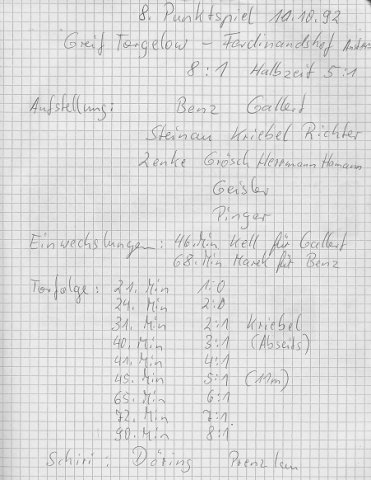 8. Punktspiel 10.10.92
Greif Torgelow - Ferdinandshof
8:1 Halbzeit 5:1
Aufstellung: Benz Gallert
Steinau Kriebel Richter
Zenke Grösch Herrmann Homann
Geisler
Pinger
Einwechslungen: 46. Min Kell für Gallert
68. Min Marek für Benz
Torfolge: 21. Min 1:0
24. Min 2:0
31. Min 2:1 Kriebel
40. Min 3:1 (Abseits)
41. Min 4:1
45. Min 5:1 (11m)
65. Min 6:1
72. Min 7:1
90. Min 8:1
Schiri: Döring Prenzlau